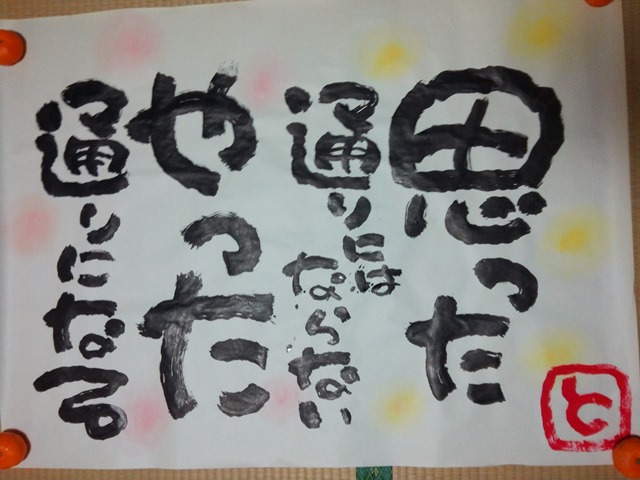 思った
通りにはならない
やった
通りになる
と